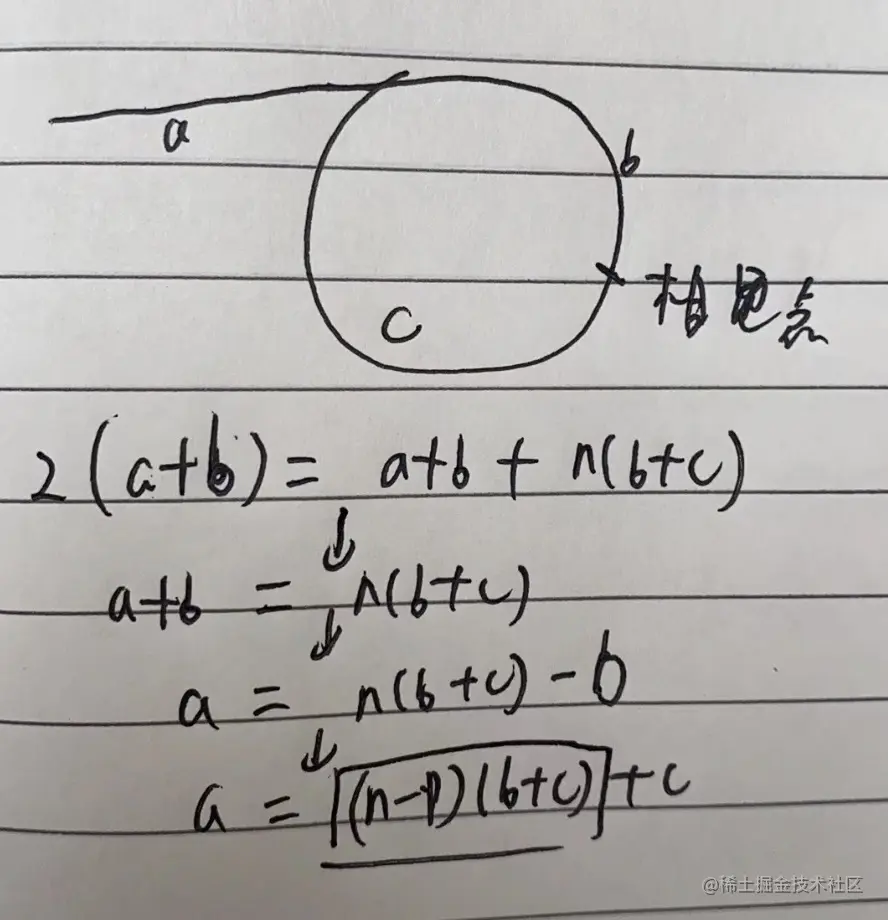 a
b
相遇点
c
2(a+b) = a+b + n(b+c)
↓
a+b = n(b+c)
↓
a = n(b+c) - b
↓
a = (n-1)(b+c) + c
@稀土掘金技术社区